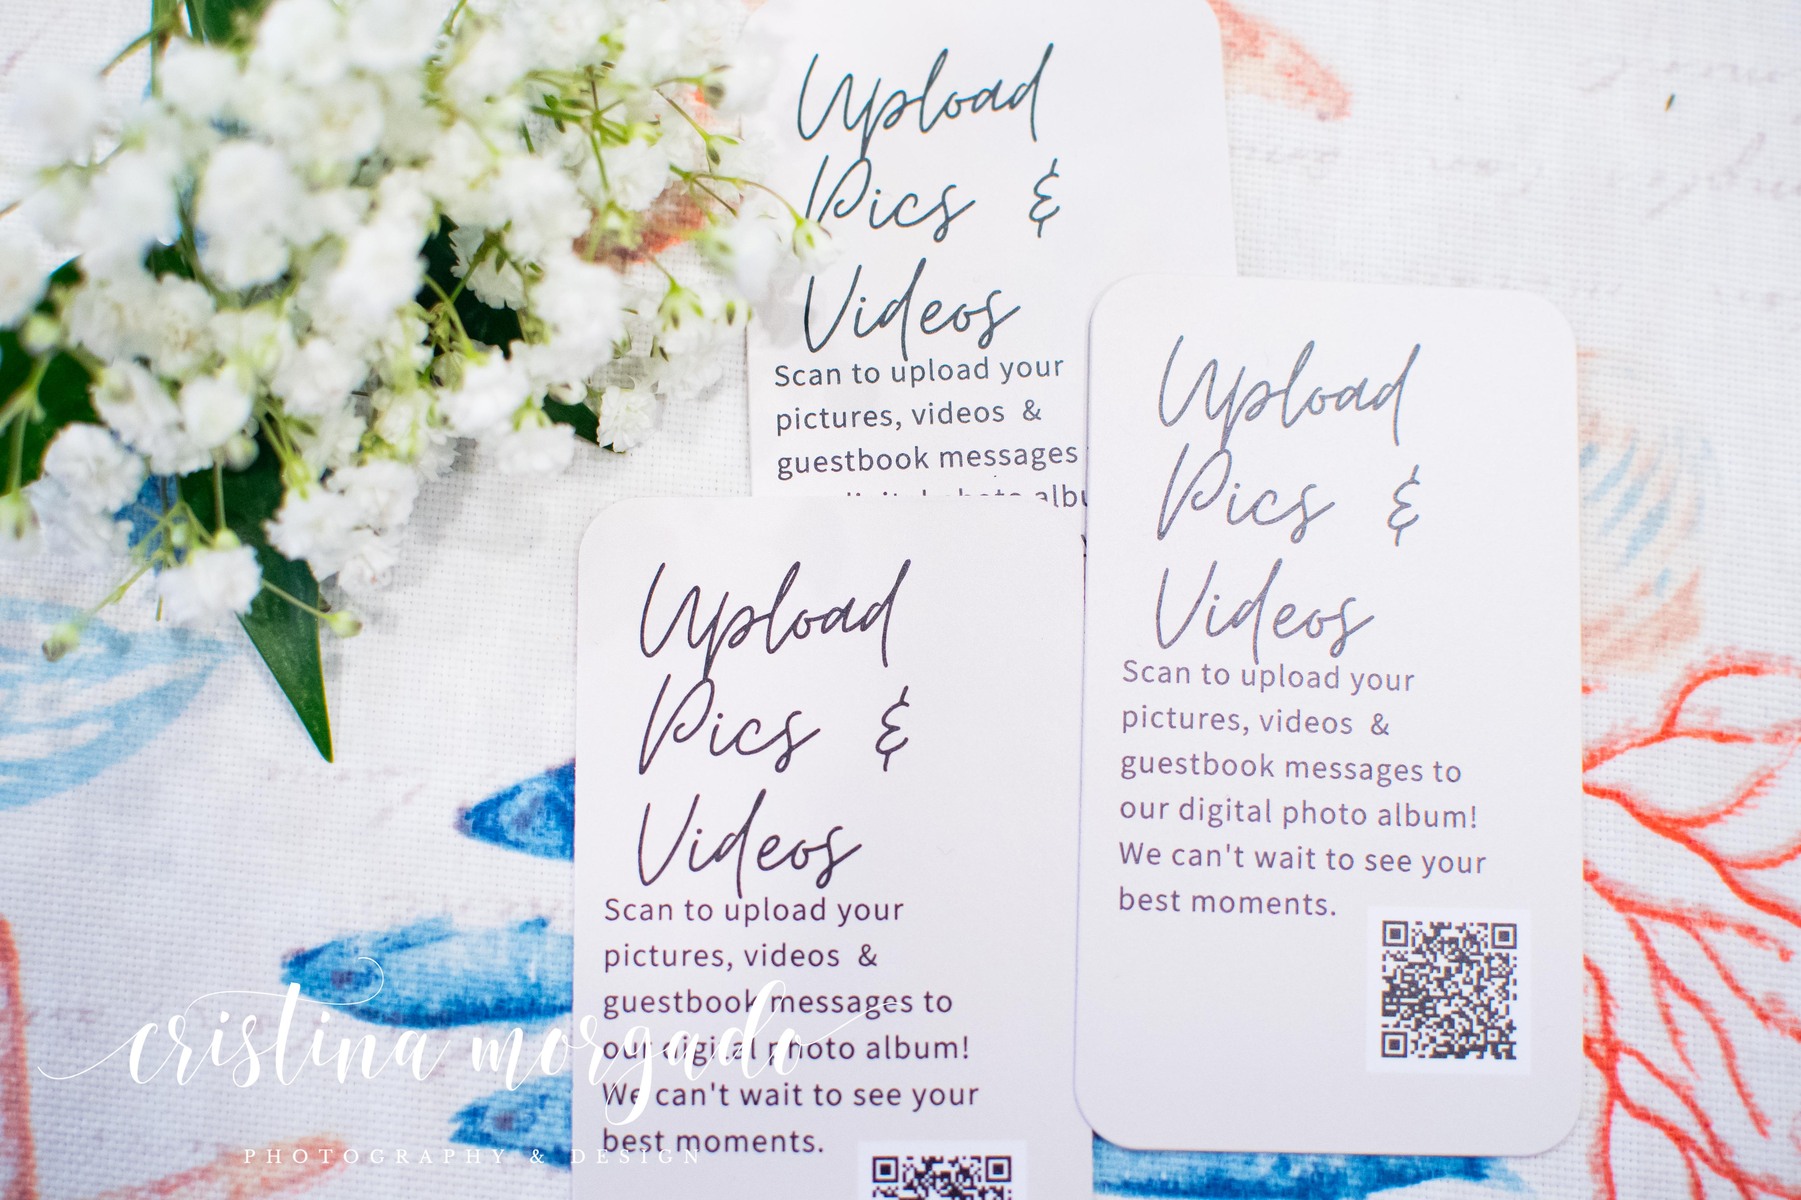 Upload
Pics &
Videos
Scan to upload your
pictures, videos &
guestbook messages
digital photo albu
Upload
Pics &
Videos
Scan to upload your
pictures, videos &
guestbook messages to
our digital photo album!
We can't wait to see your
best moments.
Upload
Pics &
Videos
Scan to upload your
pictures, videos &
guestbook messages to
our digital photo album!
We can't wait to see your
best moments.
cristina morgado
PHOTOGRAPHY & DESIGN